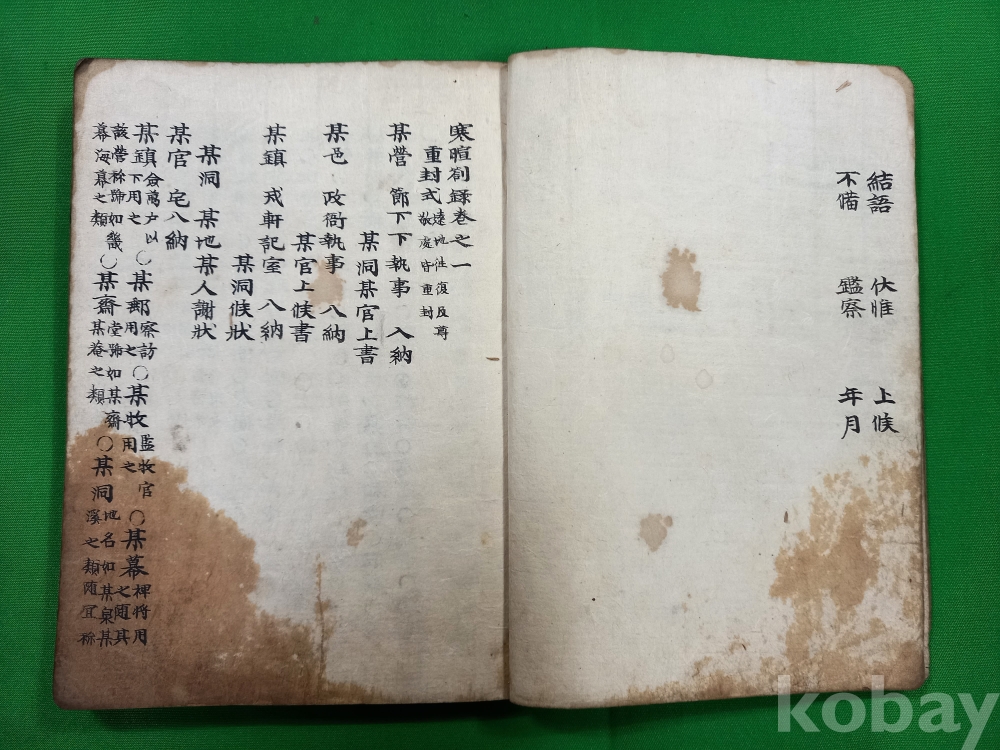 結語 伏惟 上候
不備 鑑察 年月
寒暄劄錄卷之一
重封式 遠地往復及尊敬處皆重封
某營 節下下執事 入納
某洞某官上書
某邑 政衙執事 入納
某官上候書
某鎮 戎軒記室 入納
某洞候狀
某洞 某地某人謝狀
某官 宅入納
某鎮 僉萬戶以下用之 ○某郵 察訪用之 ○某牧 監牧官用之 ○某幕 裨將用之隨其
該營称號如畿幕海幕之類 ○某齋 堂號如某齋某菴之類 ○某洞 地名如某泉某溪之類隨宜称
kobay